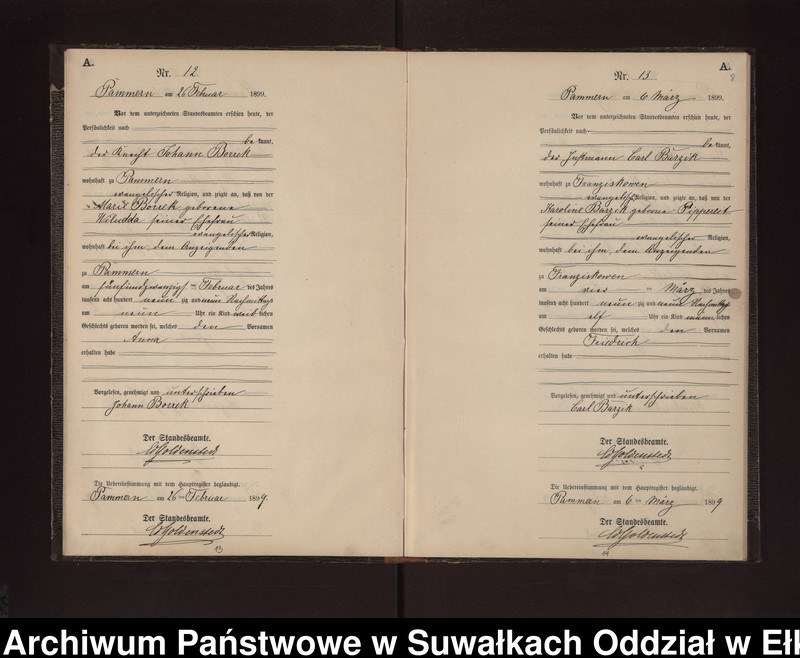 A.
Nr. 12.
Pammern am 26 Februar 1899.
Vor dem unterzeichneten Standesbeamten erschien heute, der
Persönlichkeit nach
bekannt,
der Knecht Johann Borrek
wohnhaft zu Pammern
evangelischer Religion, und zeigte an, daß von der
Marie Borrek geborene
seiner Ehefrau
evangelischer Religion,
wohnhaft bei ihm dem Anzeigenden
zu Pammern
am fünfundzwanzigsten Februar des Jahres
tausend acht hundert neunzig und neun Nachmittags
um neun Uhr ein Kind weiblichen
Geschlechts geboren worden sei, welches den Vornamen
Anna
erhalten habe
Vorgelesen, genehmigt und unterschrieben
Johann Borrek
Der Standesbeamte.
Goldenstedt
Die Uebereinstimmung mit dem Hauptregister beglaubigt.
Pammern am 26ten Februar 1899.
Der Standesbeamte.
Goldenstedt
13
A.
8
Nr. 13
Pammern am 6 März 1899.
Vor dem unterzeichneten Standesbeamten erschien heute, der
Persönlichkeit nach
bekannt,
der Instmann Carl Barzik
wohnhaft zu Franziskowen
evangelischer Religion, und zeigte an, daß von der
Karoline Barzik geborene Pippert
seiner Ehefrau
evangelischer Religion,
wohnhaft bei ihm, dem Anzeigenden
zu Franziskowen
am vier ten März des Jahres
tausend acht hundert neunzig und neun Nachmittags
um elf Uhr ein Kind männlichen
Geschlechts geboren worden sei, welches den Vornamen
Friedrich
erhalten habe
Vorgelesen, genehmigt und unterschrieben
Carl Barzik
Der Standesbeamte.
Goldenstedt
Die Uebereinstimmung mit dem Hauptregister beglaubigt.
Pammern am 6ten März 1899
Der Standesbeamte.
Goldenstedt
14
Archiwum Państwowe w Suwałkach Oddział w Ełk